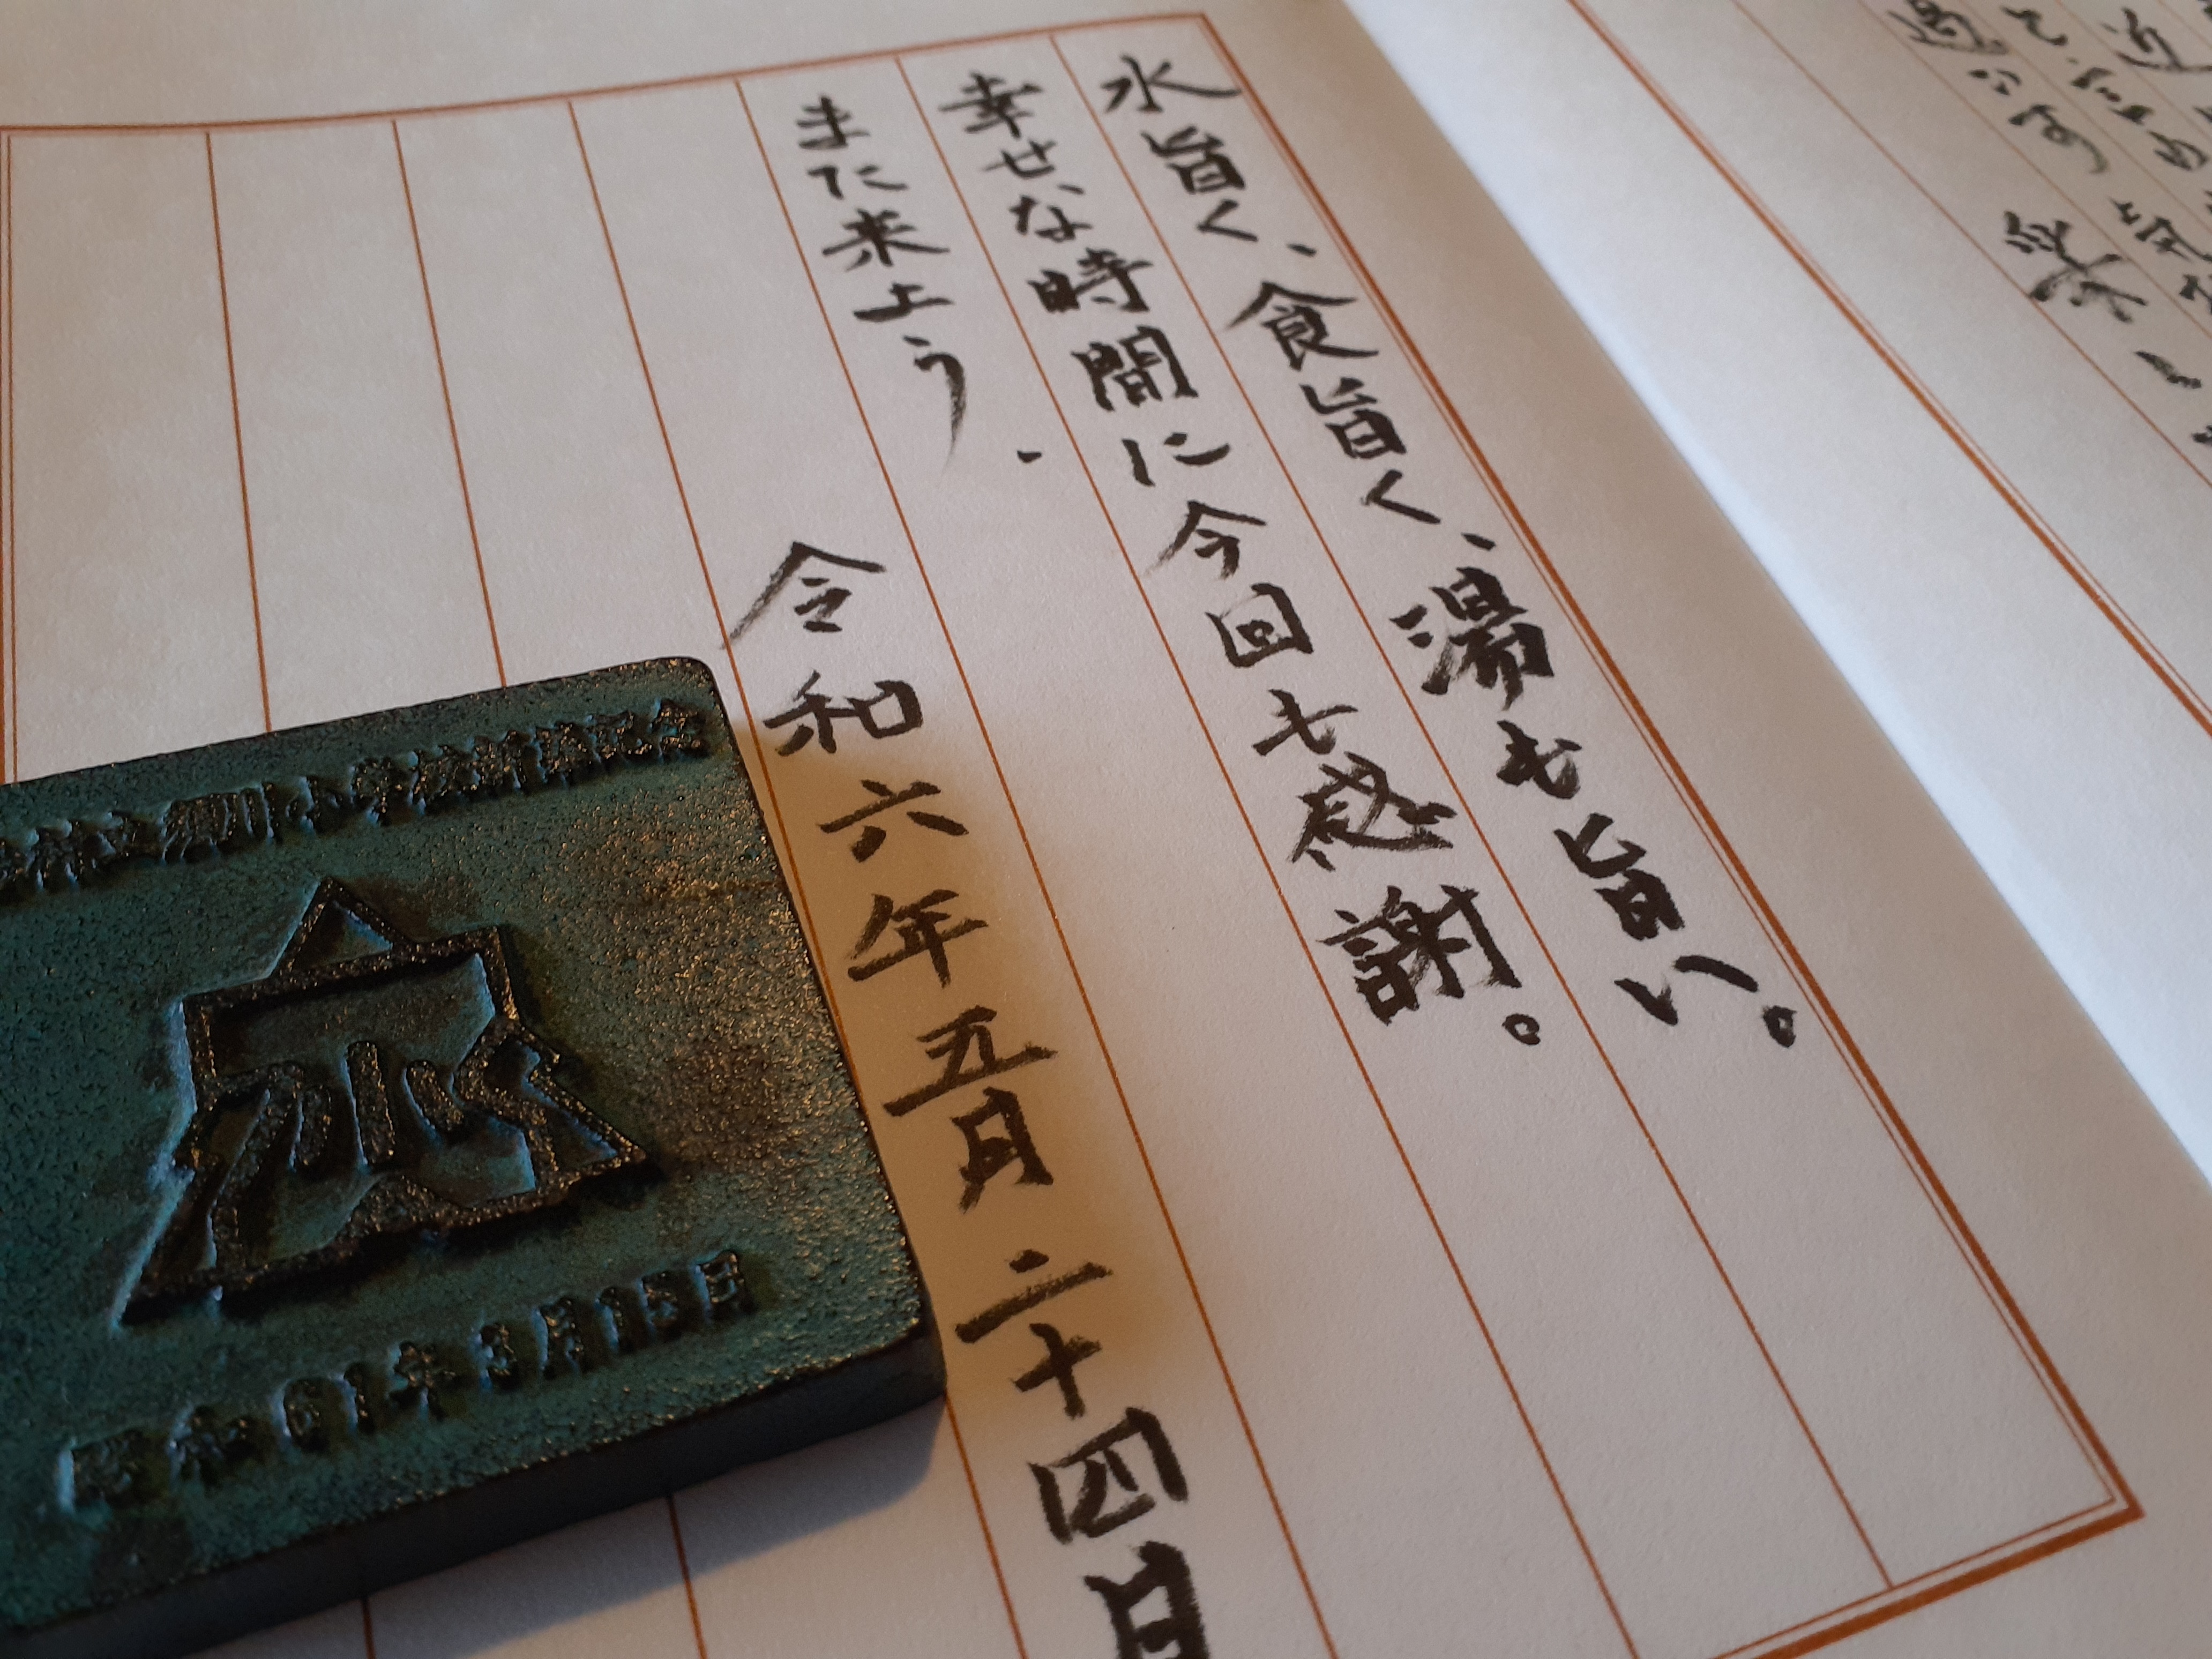 水旨く、食旨く、湯も旨い。
幸せな時間に今回も感謝。
また来よう.
令和六年五月二十四日
村立須川小学校新築記念
水
昭和61年3月15日